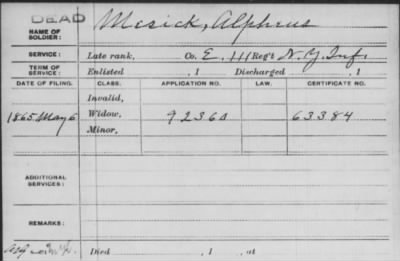 DEAD
NAME OF SOLDIER: Mesick, Alpheus
SERVICE: Late rank, Co. E, 111 Reg't N.Y. Inf.
TERM OF SERVICE: Enlisted , 1 Discharged , 1
DATE OF FILING. CLASS. APPLICATION NO. LAW. CERTIFICATE NO.
Invalid,
1865 May 6 Widow, 92360 63384
Minor,
ADDITIONAL SERVICES:
REMARKS:
Died , 1 , at